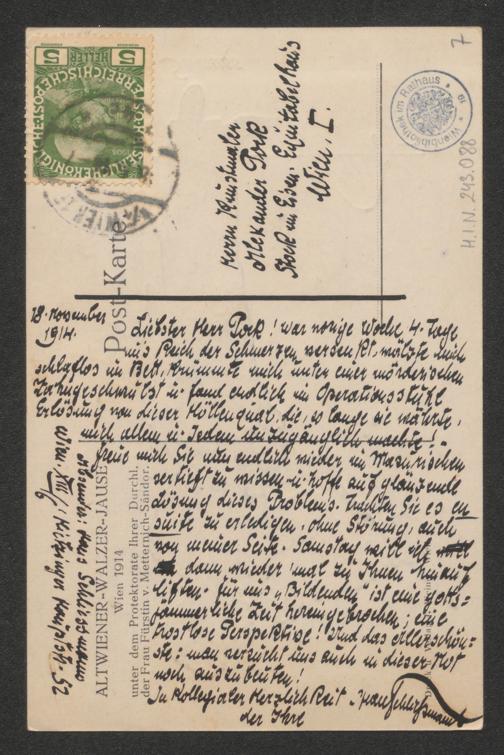 7
Wienbibliothek im Rathaus
H.I.N. 243.028
5 HELLER 5
Herrn Kunstmaler
Alexander Pock
Stock im Eisen. Equitablehaus
Wien. I.
Post-Karte
18. November
1914.
Liebster Herr Pock! War vorige Woche 4 Tage
in's Reich der Schmerzen versenkt, wälzte mich
schlaflos im Bett, krümmte mich unter einer mörderischen
Zahngeschwulst u. fand endlich im Operationsstuhl
Erlösung von dieser Höllenqual, die, so lange sie währte,
mich allem u. Jedem unzugänglich machte!
Freue mich Sie nun endlich wieder im Masurischen
vertieft zu wissen u. hoffe auf glänzende
Lösung dieses Problems. Trachten Sie es en
suite zu erledigen, ohne Störung, auch
von meiner Seite. Samstag will ich
dann wieder 'mal zu Ihnen hinauf
liften. Für uns „Bildenden" ist eine gotts-
jämmerliche Zeit hereingebrochen; eine
trostlose Perspektive! Und das allerschön-
ste: man versucht uns auch in dieser Not
noch auszubeuten!
In kollegialer Herzlichkeit Hans Schließmann
der Ihre
Absender: Hans Schliessmann
Wien. XIII/6 Hitzinger Hauptstr. 52
ALTWIENER-WALZER-JAUSE
Wien 1914
unter dem Protektorate Ihrer Durchl.
der Frau Fürstin v. Metternich-Sándor.